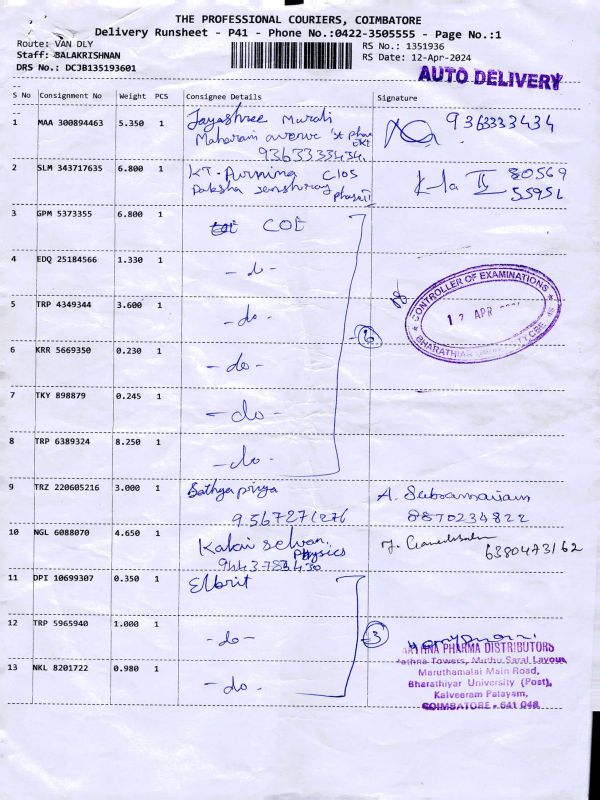 THE PROFESSIONAL COURIERS, COIMBATORE
Delivery Runsheet - P41 - Phone No.:0422-3505555 - Page No.:1
Route: VAN DLY
Staff: BALAKRISHNAN
DRS No.: DCJB135193601
RS No.: 1351936
RS Date: 12-Apr-2024
AUTO DELIVERY
S No Consignment No Weight PCS Consignee Details Signature
1 MAA 300894463 5.350 1 Jayashree Murali
9363333434
Maharani avenue 1st phase
9363333434
2 SLM 343717635 6.800 1 KT. C105
80569
55951
3 GPM 5373355 6.800 1 COE
4 EDQ 25184566 1.330 1 -do-
CONTROLLER OF EXAMINATIONS
12 APR
BHARATHIAR
5 TRP 4349344 3.600 1 -do-
6
6 KRR 5669350 0.230 1 -do-
7 TKY 898879 0.245 1 -do-
8 TRP 6389324 8.250 1 -do-
9 TRZ 220605216 3.000 1 Sathyapriya
9567271276
A. Subramaniam
8870234822
10 NGL 6088070 4.650 1 Kalai Selvan
Physics
6380473162
11 DPI 10699307 0.350 1 Elbrit
12 TRP 5965940 1.000 1 -do-
3
PHARMA DISTRIBUTORS
Towers, Muthu Saral Layout
Maruthamalai Main Road,
Bharathiyar University (Post),
Kalveeram Palayam,
COIMBATORE - 641 046
13 NKL 8201722 0.980 1 -do-